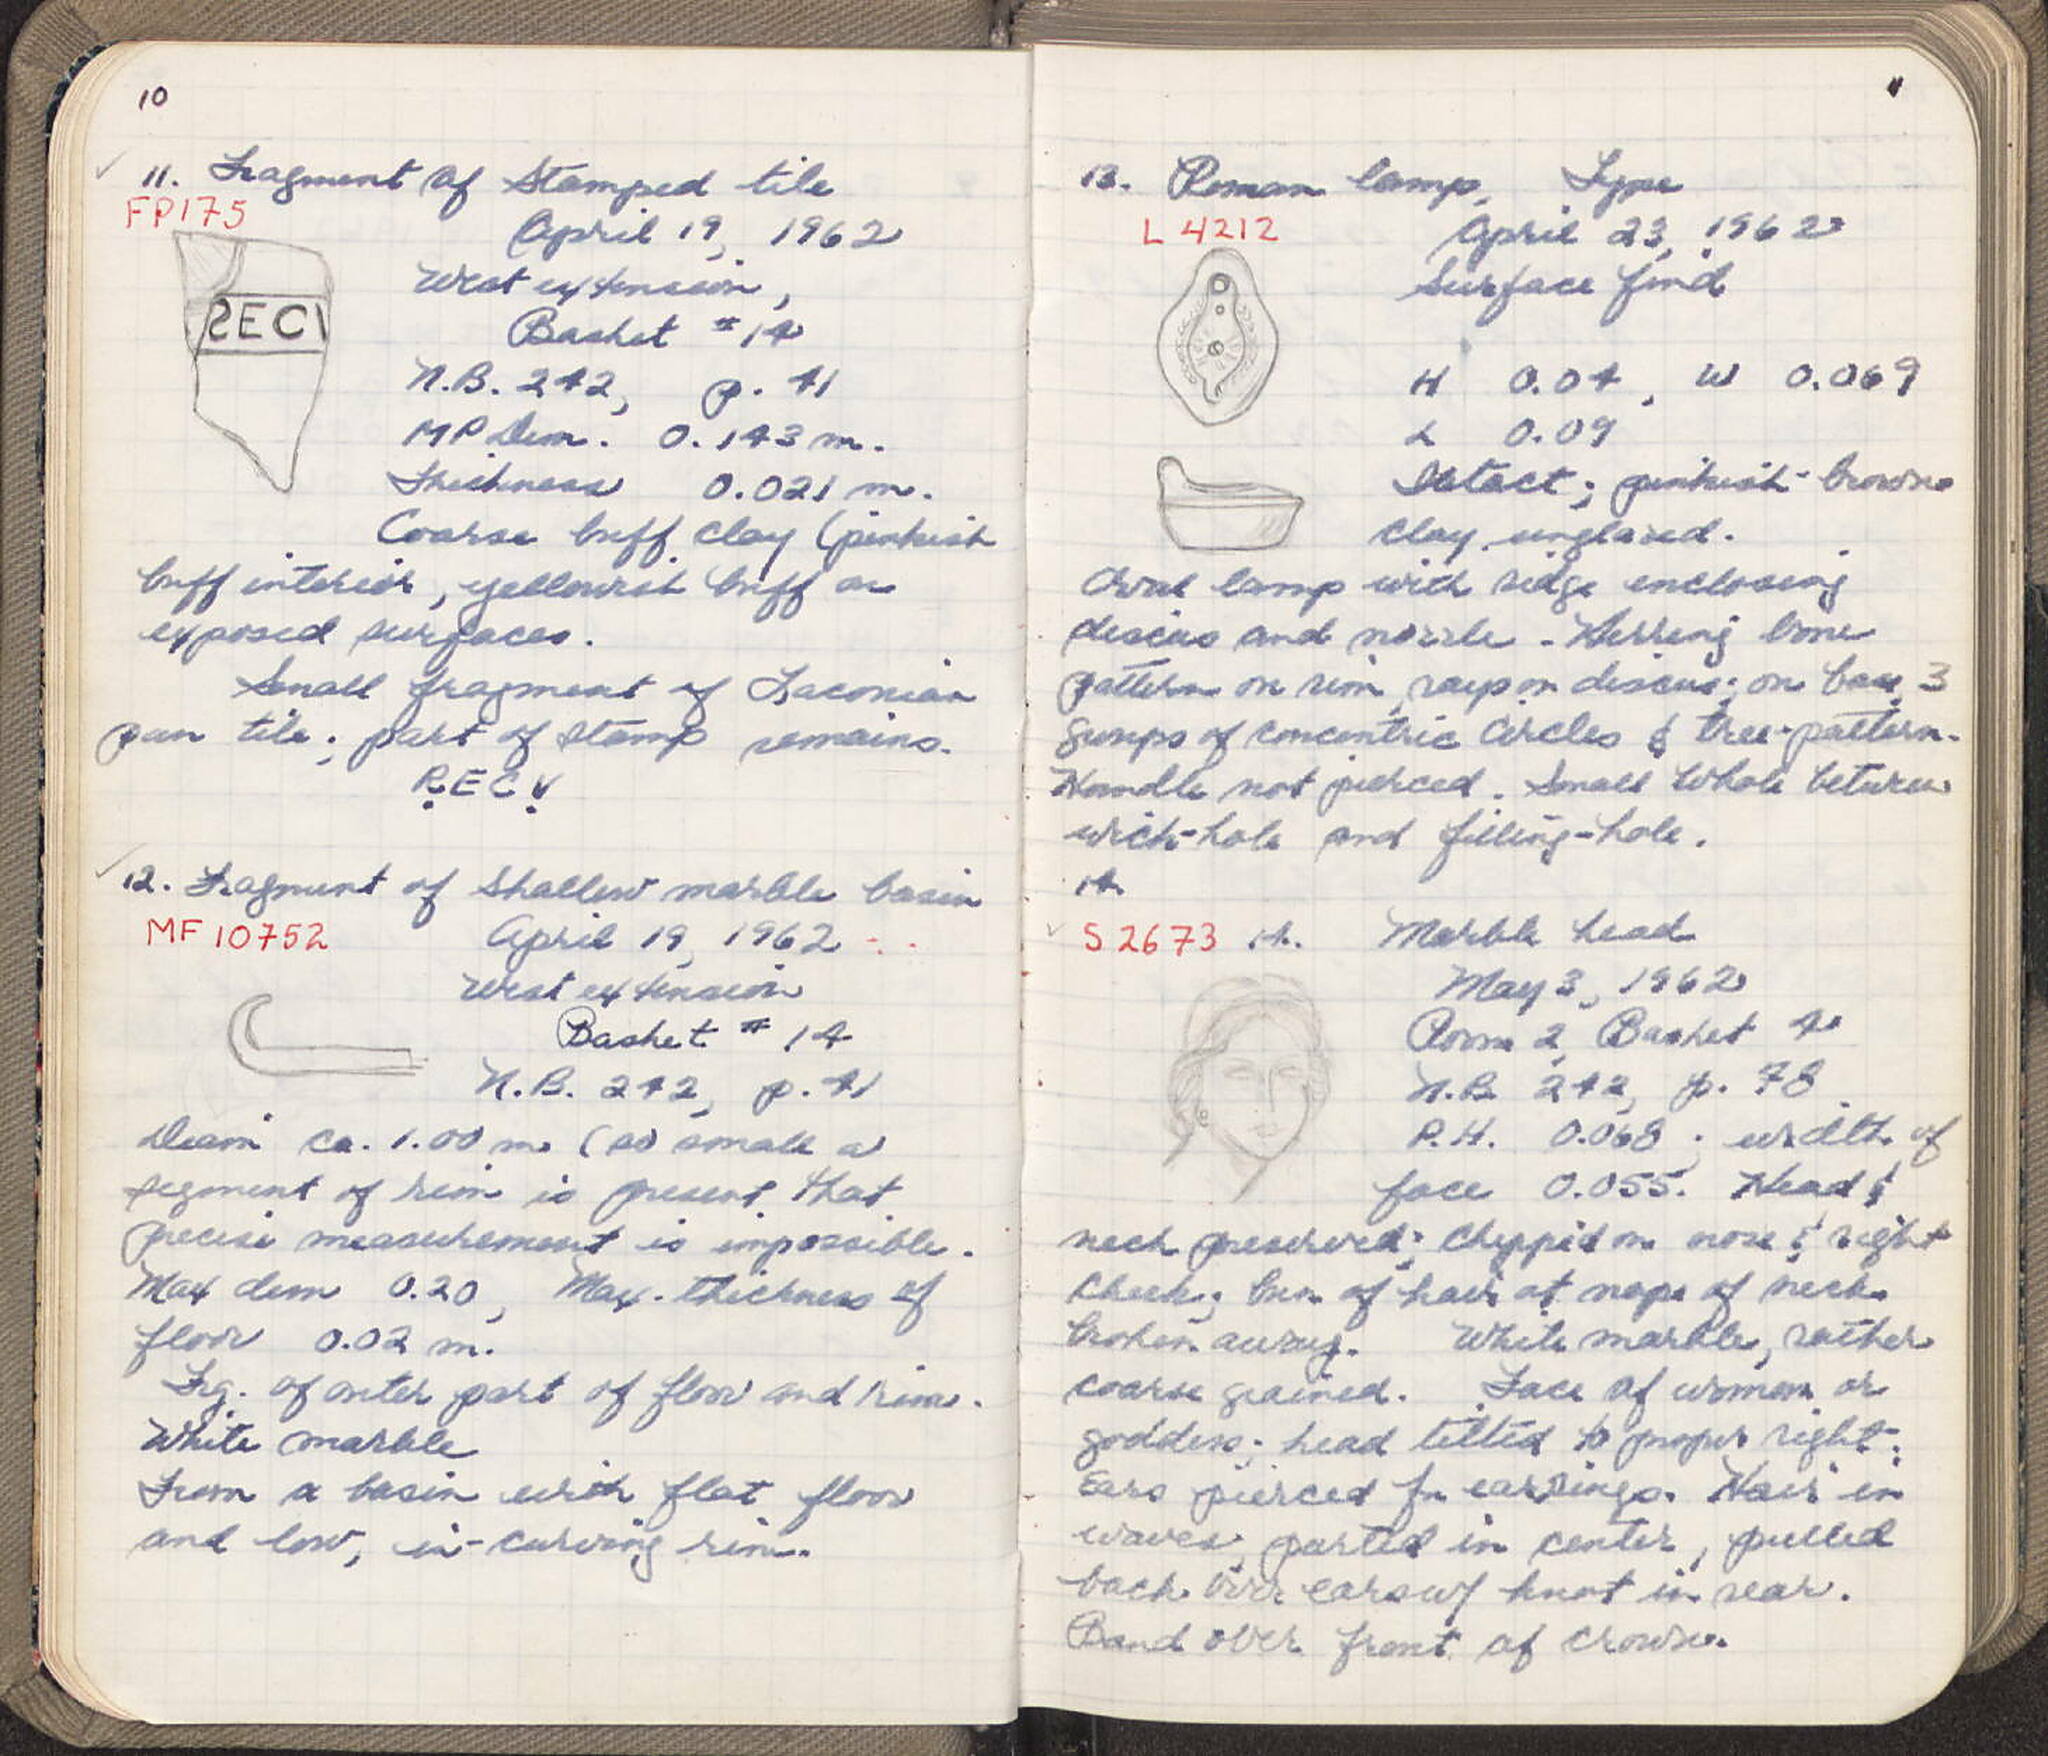 10
11. Fragment of Stamped tile
FP175
April 19, 1962
West extension,
Basket # 14
RECV
N.B. 242, p. 41
MP Dim. 0.143 m.
Thickness 0.021 m.
Coarse buff clay (pinkish
buff interior, yellowish buff on
exposed surfaces.
Small fragment of Laconian
pan tile; part of stamp remains.
ṚECṾ
12. Fragment of shallow marble basin
MF 10752
April 19, 1962
West extension
Basket # 14
N.B. 242, p. 41
Diam ca. 1.00 m (so small a
segment of rim is present that
precise measurement is impossible.
Max dim 0.20, Max. thickness of
floor 0.02 m.
Frg. of outer part of floor and rim.
White marble
From a basin with flat floor
and low, in-curving rim.
11
13. Roman lamp, Type
L 4212
April 23, 1962
Surface find
H 0.04, W 0.069
L 0.09
Intact; pinkish-brown
clay, unglazed.
Oval lamp with ridge enclosing
discus and nozzle - Herring bone
pattern on rim, rays on discus; on base 3
gumps of concentric circles & tree-pattern.
Handle not pierced. Small whole between
wick-hole and filling-hole.
14.
S 2673 14. Marble head
May 3, 1962
Room 2, Basket 4
N.B. 242, p. 78
P.H. 0.068; width of
face 0.055. Head &
neck preserved; chipped on nose & right
cheek; bun of hair at nape of neck
broken away. White marble, rather
coarse grained. Face of woman or
goddess; head tilted to proper right;
Ears pierced for earrings. Hair in
waves, parted in center, pulled
back over ears w/ knot in rear.
Band over front of crown.